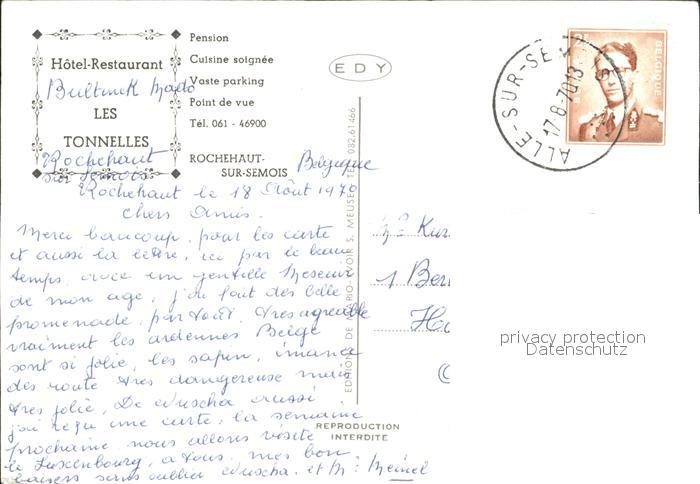 Hôtel-Restaurant
Bultinck Mado
LES
TONNELLES
Rochehaut
sur Semois
Pension
Cuisine soignée
Vaste parking
Point de vue
Tél. 061 - 46900
ROCHEHAUT-
SUR-SEMOIS
Belgique
EDY
ALLE-SUR-SE
17-8-70 13
BELGIQUE
Rochehaut le 18 Août 1970
chers Amis.
Merci beaucoup, pour les carte
et aussi la lettre, ici par le beau
temps, avec un gentille Messieur
de mon age, j'ai fait des belle
promenade, par tout. tres agreable
vraiment les ardennes Belge
sont si jolie, les sapin,
des route tres dangereuse mais
tres jolie, De aussi
j'ai reçu une carte, la semaine
prochaine nous allons visité
le Luxenbourg, a vous mes bon
baisers sans oublier et Mr Meinel
EDITIONS DE S. MEUSE, TEL. 082.61466
Kur
1 Ber
Ha
privacy protection
Datenschutz
REPRODUCTION
INTERDITE